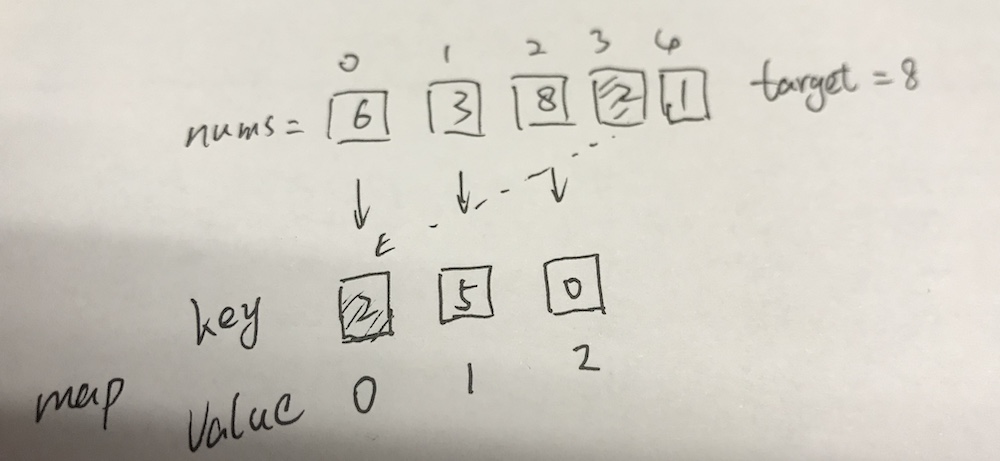 0 1 2 3 4
nums = 6 3 8 2 1 target = 8
key 2 5 0
map
value 0 1 2